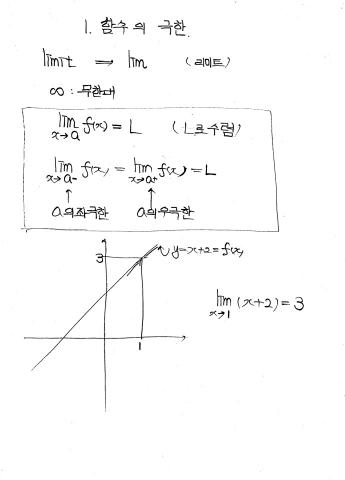 1. 함수의 극한.
limit ⇒ lim (리미트)
∞ : 무한대
lim x→a f(x) = L (L로 수렴)
lim x→a- f(x) = lim x→a+ f(x) = L
↑ ↑
a의 좌극한 a의 우극한
y=x+2=f(x)
3
1
lim x→1 (x+2) = 3